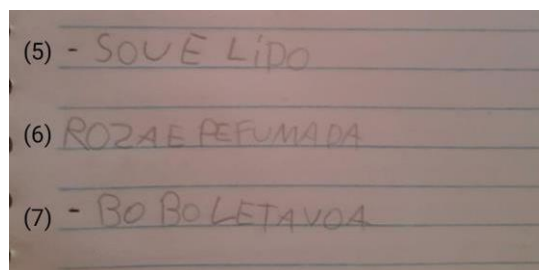 (5) - SOU E LiDO
(6) ROZA E PEFUMADA
(7) - BO BOLETA VOA